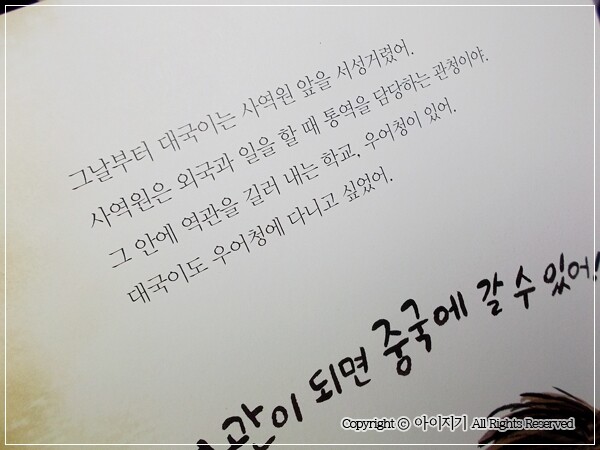 그날부터 대국이는 사역원 앞을 서성거렸어.
사역원은 외국과 일을 할 때 통역을 담당하는 관청이야.
그 안에 역관을 길러 내는 학교, 우어청이 있어.
대국이도 우어청에 다니고 싶었어.
관이 되면 중국에 갈 수 있어!
Copyright ⓒ 아이지기 All Rights Reserved